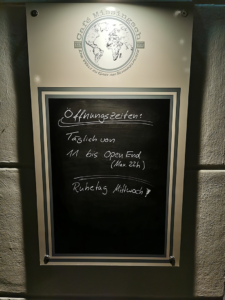 Öffnungszeiten:
Täglich von
11 bis Open End
(Max 22h)
Ruhetag Mittwoch!